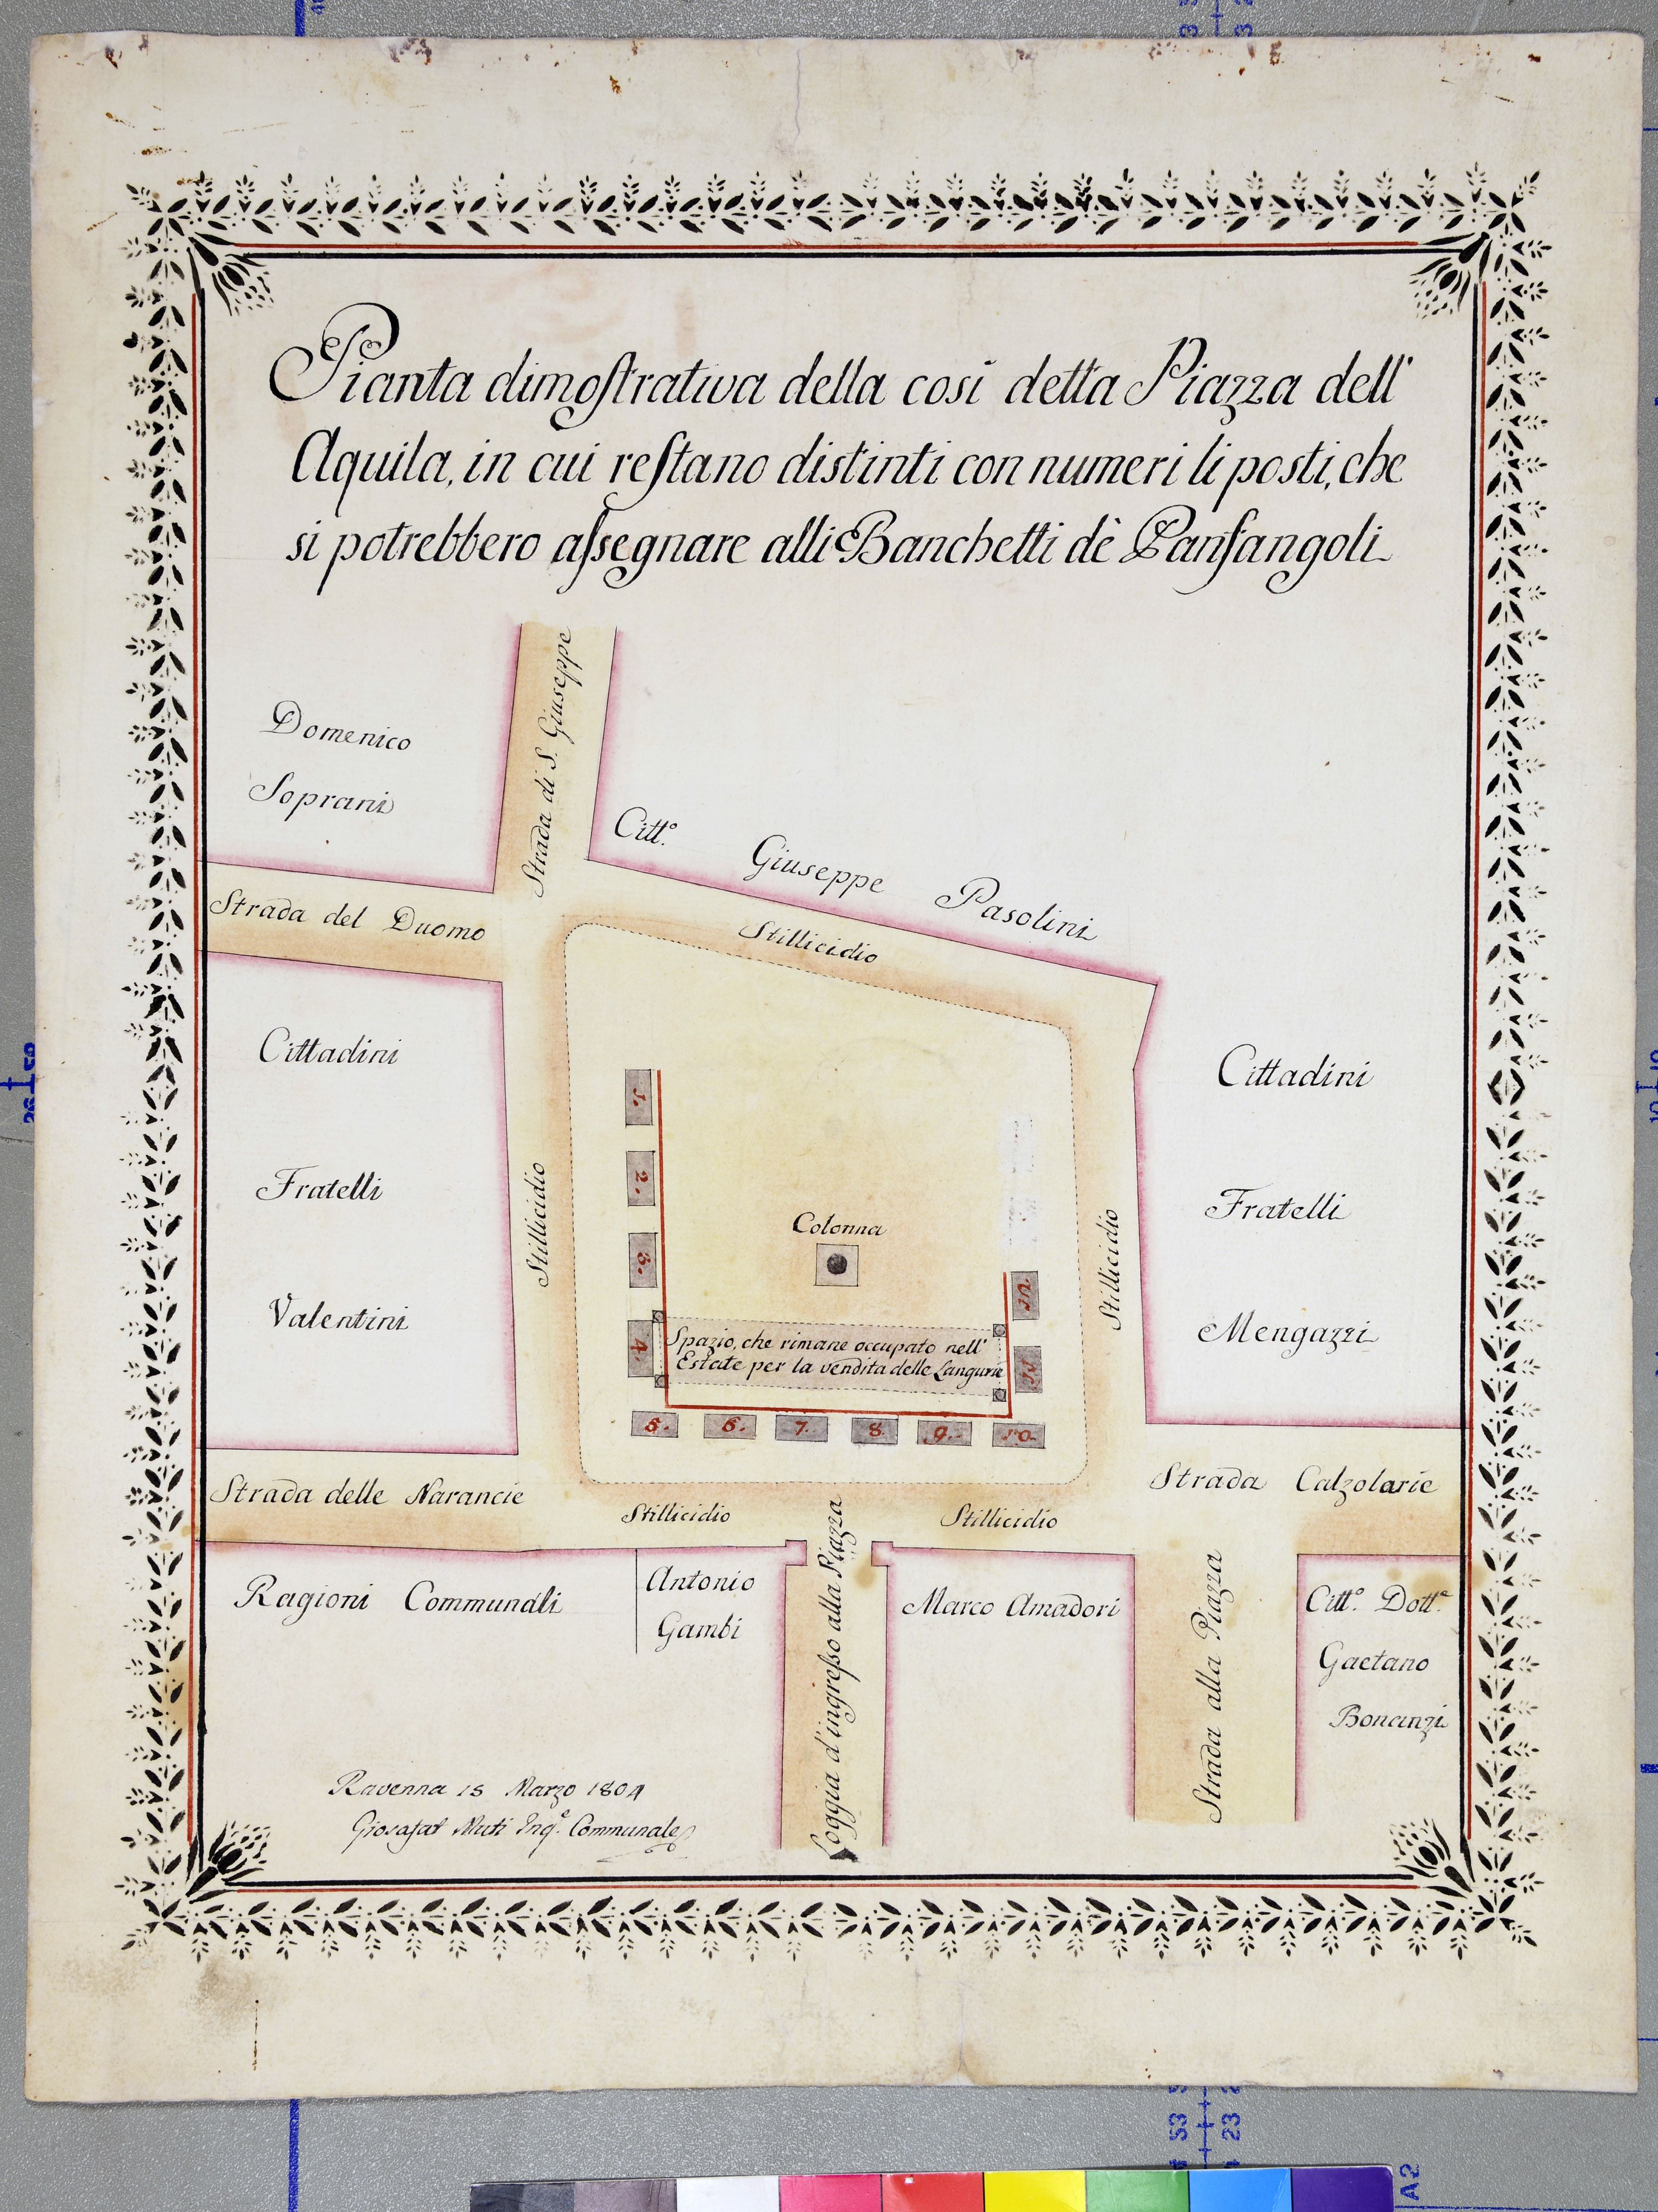 Pianta dimostrativa della così detta Piazza dell'
Aquila, in cui restano distinti con numeri li posti, che
si potrebbero assegnare alli Banchetti dè Panfangoli
Strada di S. Giuseppe
Domenico
Soprani
Citt.º Giuseppe Pasolini
Strada del Duomo
Stillicidio
Cittadini
Fratelli
Valentini
Cittadini
Fratelli
Mengazzi
Stillicidio
Stillicidio
1.
2.
3.
4.
Colonna
Spazio, che rimane occupato nell'
Estate per la vendita delle Langurie
12
11
5. 6. 7. 8. 9. 10.
Strada delle Narancie
Stillicidio
Stillicidio
Strada Calzolarie
Ragioni Communali
Antonio
Gambi
Loggia d'ingresso alla Piazza
Marco Amadori
Strada alla Piazza
Citt.º Dott.e
Gaetano
Bonanzi
Ravenna 15 Marzo 1804
Giosafat Muti Ing.e Communale
A2
53
23